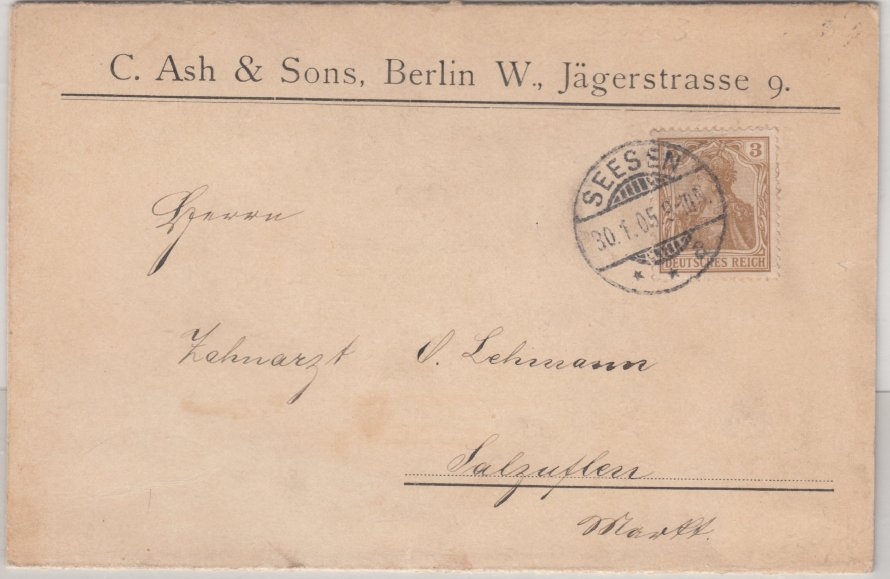 C. Ash & Sons, Berlin W., Jägerstrasse 9.
SEESEN
30.1.05.
a
3
DEUTSCHES REICH
Herrn
Zahnarzt O. Lehmann
Salzuflen
Markt.